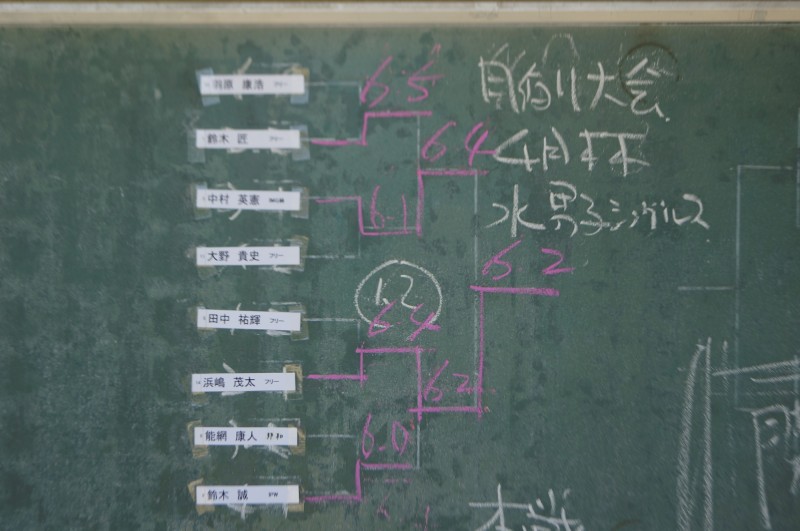 羽原 康浩 フリー
鈴木 匠 フリー
中村 英憲
大野 貴史 フリー
田中 祐輝 フリー
浜嶋 茂太 フリー
能網 康人
鈴木 誠
6-5
6 4
6-1
6 2
1.2
6-4
6 2
6-0
月例大会
4月杯
水 男子シングルス